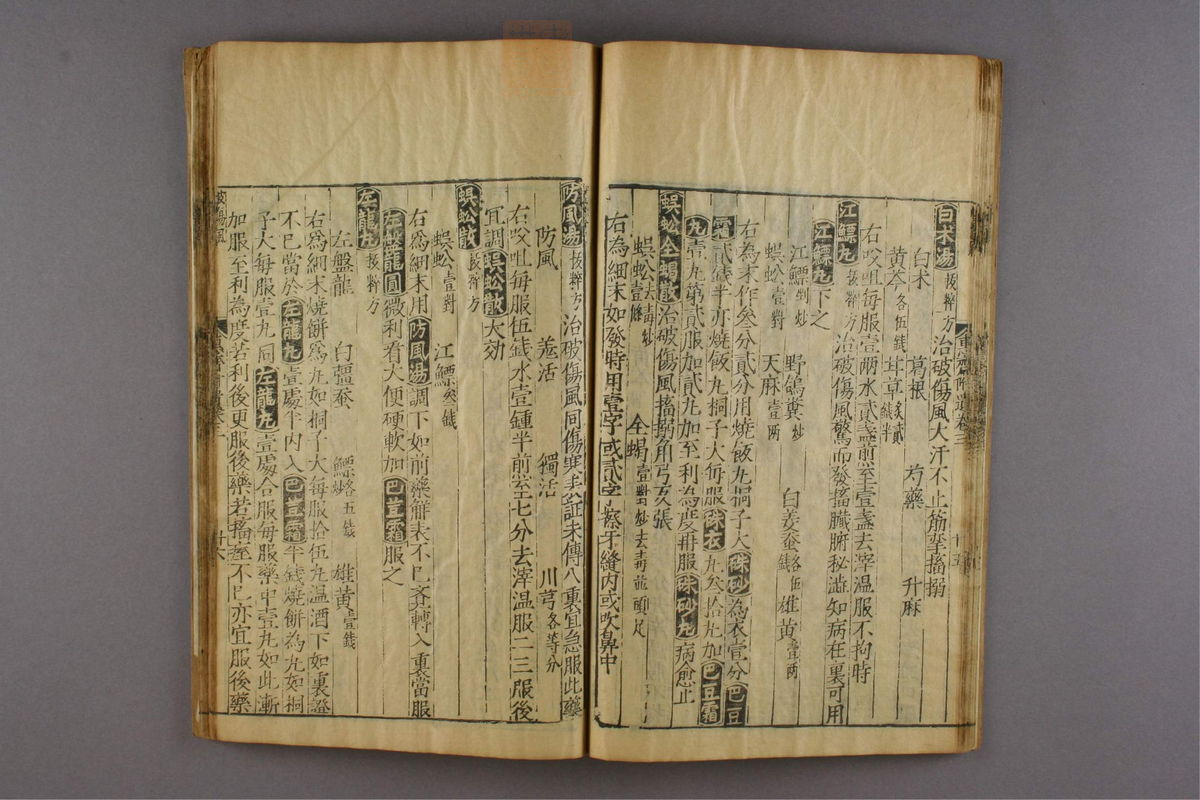 白朮湯 拔粹方 治破傷風大汗不止筋攣搐搦
白朮 葛根 芍藥 升麻
黄芩各伍錢 甘草炙貳錢半
右㕮咀每服壹兩水貳盞煎至壹盞去滓温服不拘時
江鰾丸 拔粹方 治破傷風驚而發搐臟腑秘澁知病在裏可用
江鰾丸下之
江鰾剉炒 野鴿糞炒 白姜蚕各伍錢 雄黄壹兩
蜈蚣壹對 天麻壹兩
右為末作叁分貳分用燒飯丸桐子大硃砂為衣壹分巴豆
霜貳錢半亦燒飯丸桐子大每服硃衣丸叁拾丸加巴豆霜
丸壹丸第貳服加貳丸加至利為度再服硃砂丸病愈止
蜈蚣全蝎散 治破傷風搐搦角弓反張
蜈蚣去毒炒壹條 全蝎壹對炒去毒並頭足
右為細末如發時用壹字或貳字擦牙縫内或吹鼻中
防風湯 拔粹方 治破傷風同傷寒表証未傳入裏宜急服此藥
防風 羗活 獨活 川芎各等分
右㕮咀每服伍錢水壹鍾半煎至七分去滓温服二三服後
宜調蜈蚣散大効
蜈蚣散 拔粹方
蜈蚣壹對 江鰾叁錢
右爲細末用防風湯調下如前藥觧表不已斉轉入裏當服
左盤龍圓微利看大便硬軟加巴荳霜服之
左龍丸 拔粹方
左盤龍 白彊蚕 鰾各五錢炒 雄黄壹錢
右爲細末燒餅爲丸如桐子大每服拾伍丸温酒下如裏證
不已當於左龍丸壹處半内入巴荳霜半錢燒餅為丸如桐
子大每服壹丸同左龍丸壹處合服每服藥中壹丸如此漸
加服至利為度若利後更服後藥若搐痓不已亦宜服後藥